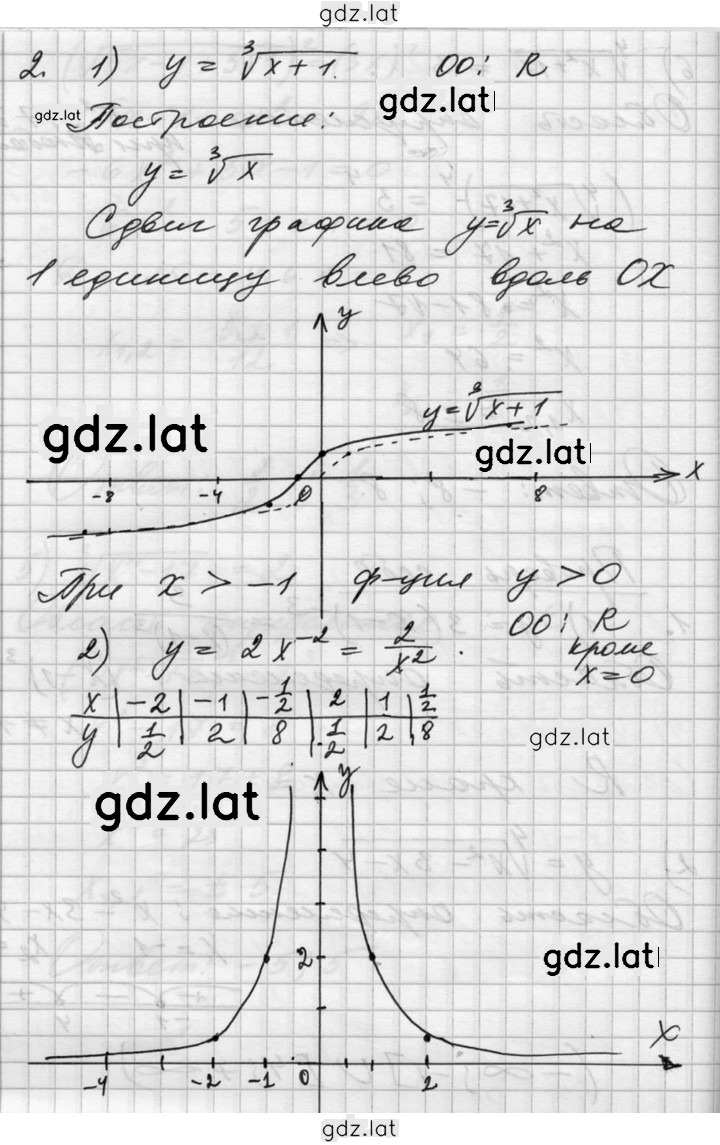 gdz.lat
2. 1) y = ∛(x + 1). ОО: R
gdz.lat
gdz.lat Построение:
y = ∛x
Сдвиг графика y = ∛x на
1 единицу влево вдоль OX
y
y = ∛(x + 1)
gdz.lat
gdz.lat
-8 -4 0 8 x
При x > -1 ф-ция y > 0
2) y = 2x⁻² = 2/x². ОО: R
кроме
x = 0
x | -2 | -1 | -1/2 | 2 | 1 | 1/2
y | 1/2 | 2 | 8 | 1/2 | 2 | 8
gdz.lat
y
gdz.lat
2
gdz.lat
x
-4 -2 -1 0 2
gdz.lat